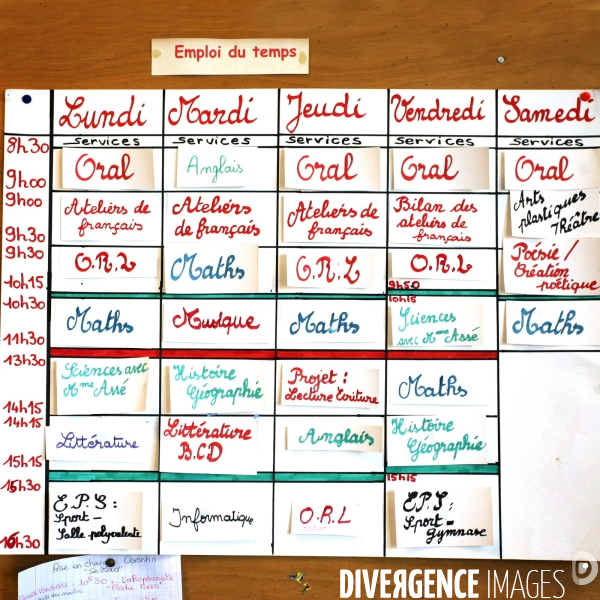 Emploi du temps
Lundi Mardi Jeudi Vendredi Samedi
services services services services services
8h30
Oral Anglais Oral Oral Oral
9h00
9h00
Ateliers de français
Ateliers de français
Ateliers de français
Bilan des ateliers de français
Arts plastiques Théâtre
9h30
9h30
O.R.L Maths O.R.L O.R.L
Poésie / Création poétique
10h15
9h50
10h15
10h30
Maths Musique Maths
Sciences avec Mme Assé
Maths
11h30
13h30
Sciences avec Mme Assé
Histoire Géographie
Projet : Lecture Ecriture
Maths
14h15
14h15
Littérature
Littérature B.C.D
Anglais
Histoire Géographie
15h15
15h30
15h15
E.P.S : Sport - Salle polyvalente
Informatique
O.R.L
E.P.S : Sport - Gymnase
16h30
DIVERGENCE IMAGES